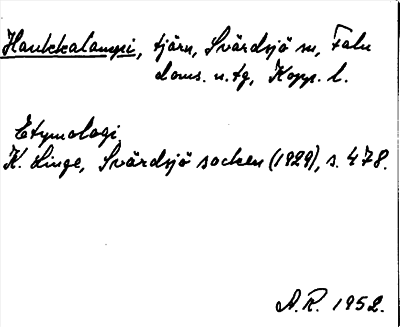 Haukkalampi, tjärn, Svärdsjö sn, Falu
doms. n. tg, Kopp. l.
Etymologi
K. Linge, Svärdsjö socken (1929), s. 478.
A.R. 1952.